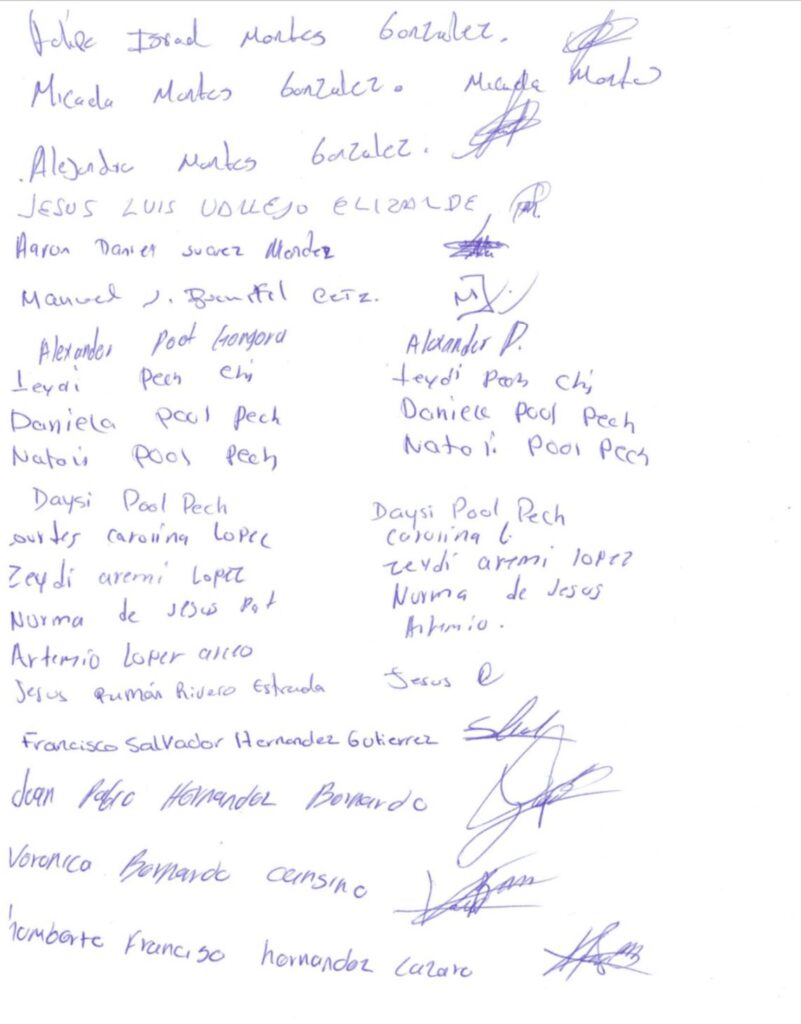 Felipe Israel Montes Gonzalez.
Micaela Montes Gonzalez. Micaela Montes
Alejandro Montes Gonzalez.
JESUS LUIS VALLEJO ELIZALDE
Aaron Daniel Suarez Mendez
Manuel J.
Alexander Poot Gongora Alexander P.
Leydi Pech Chi Leydi Pech Chi
Daniela Pool Pech Daniela Pool Pech
Pool Pech Pool Pech
Daysi Pool Pech Daysi Pool Pech
carolina Lopez carolina L.
Zeydi aremi Lopez zeydi aremi lopez
Nurma de Jesus Pat Nurma de Jesus
Artemio Lopez Artemio.
Jesus Román Rivero Estrada Jesus
Francisco Salvador Hernandez Gutierrez
Juan Pablo Hernandez Bernardo
Veronica Bernardo
Francisco hernandez Lazaro